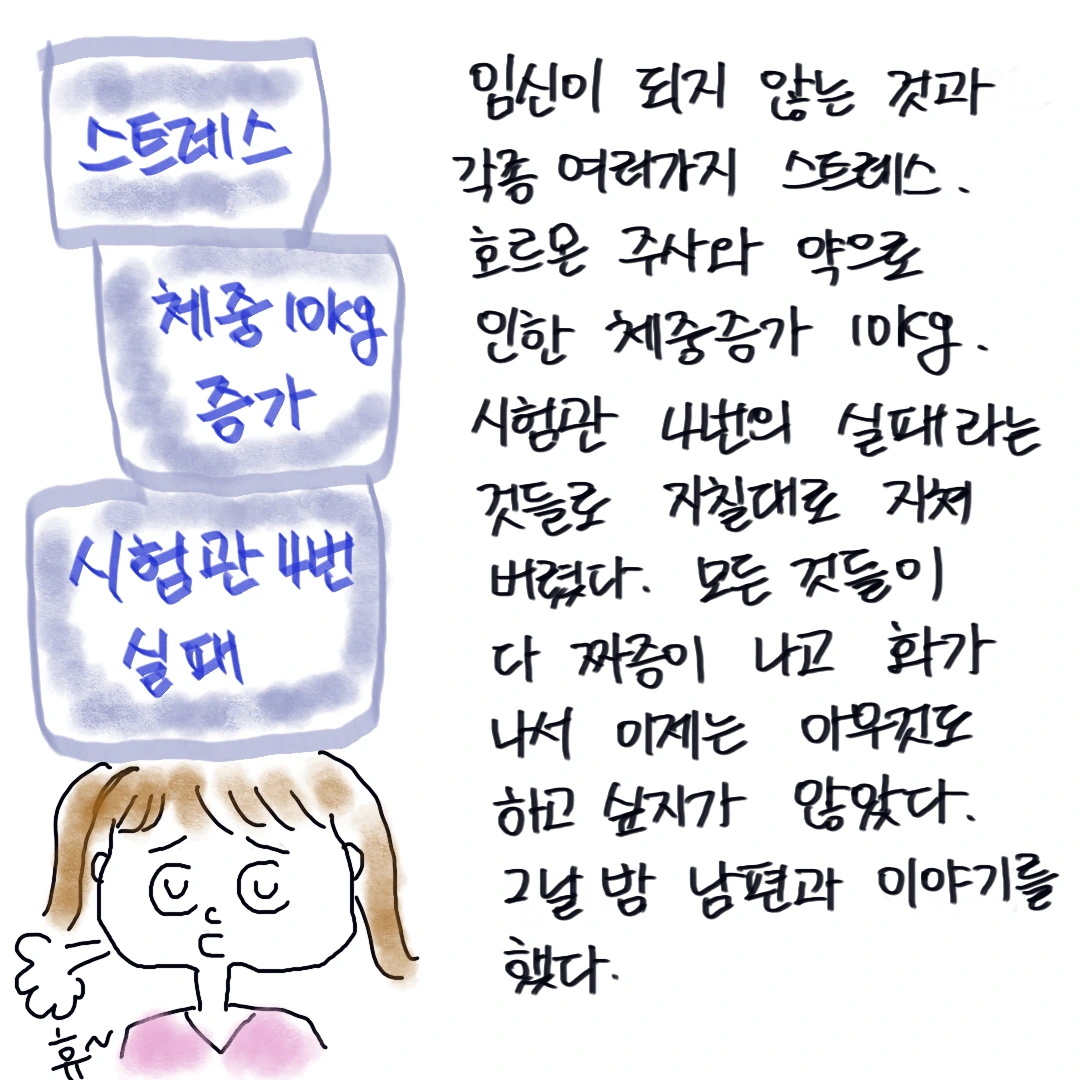 스트레스
체중 10kg
증가
시험관 4번
실패
휴~
임신이 되지 않는 것과
각종 여러가지 스트레스.
호르몬 주사와 약으로
인한 체중증가 10kg.
시험관 4번의 실패라는
것들로 지칠대로 지쳐
버렸다. 모든 것들이
다 짜증이 나고 화가
나서 이제는 아무것도
하고 싶지가 않았다.
그날 밤 남편과 이야기를
했다.